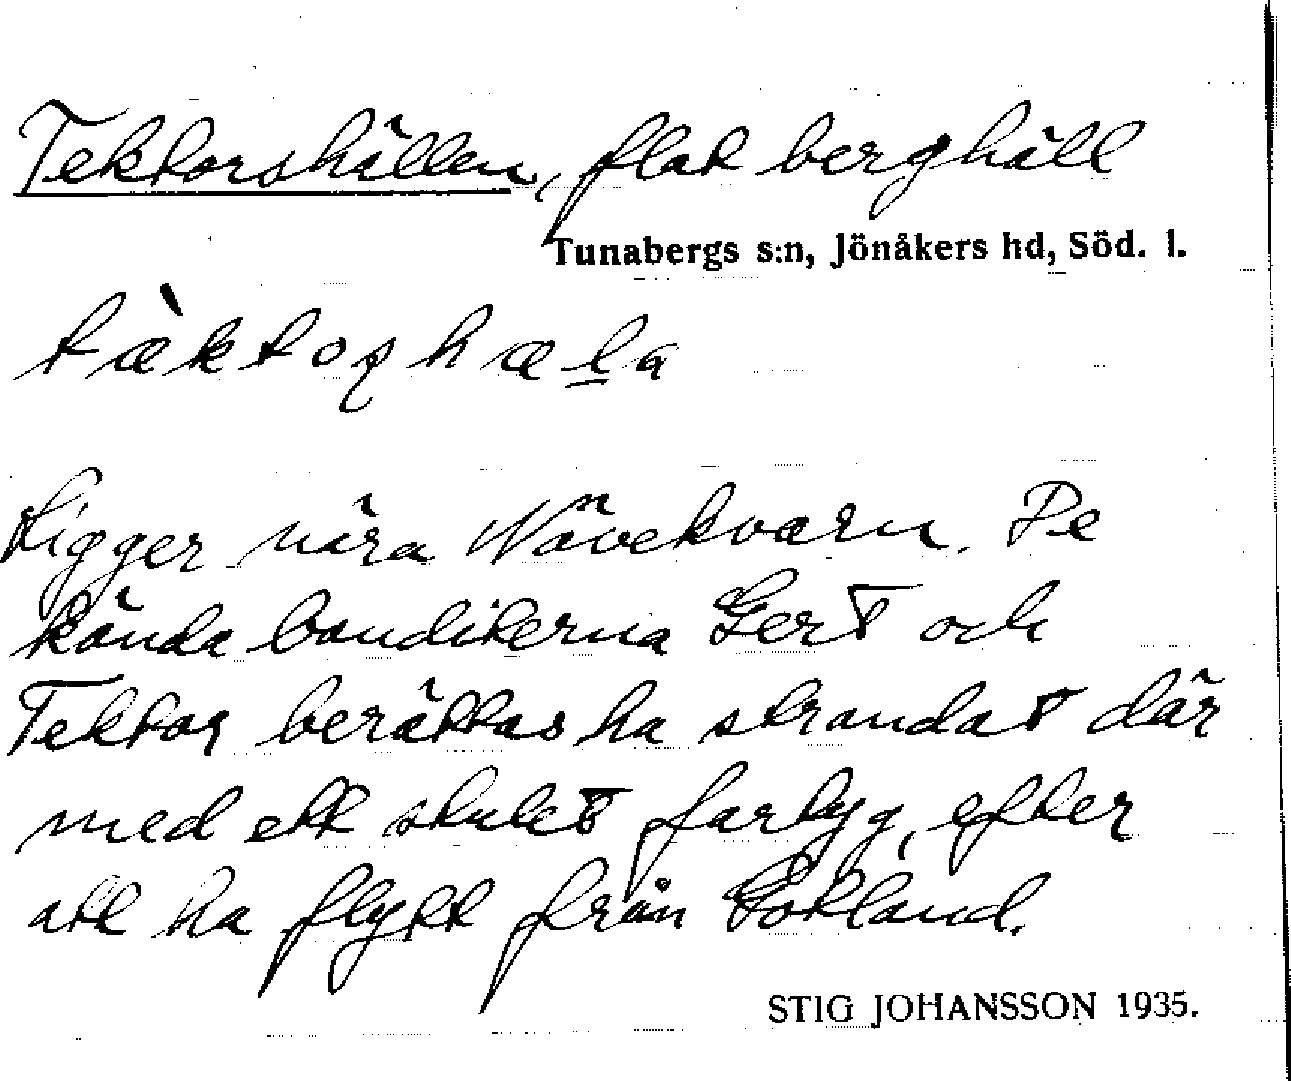 Tektorshällen, flat berghäll
Tunabergs s:n, Jönåkers hd, Söd. l.
tæ̀ktoʂhæla
Ligger nära Nävekvarn. De
kända banditerna Gert och
Tektor berättas ha strandat där
med ett stulet fartyg, efter
att ha flytt från Gotland.
STIG JOHANSSON 1935.